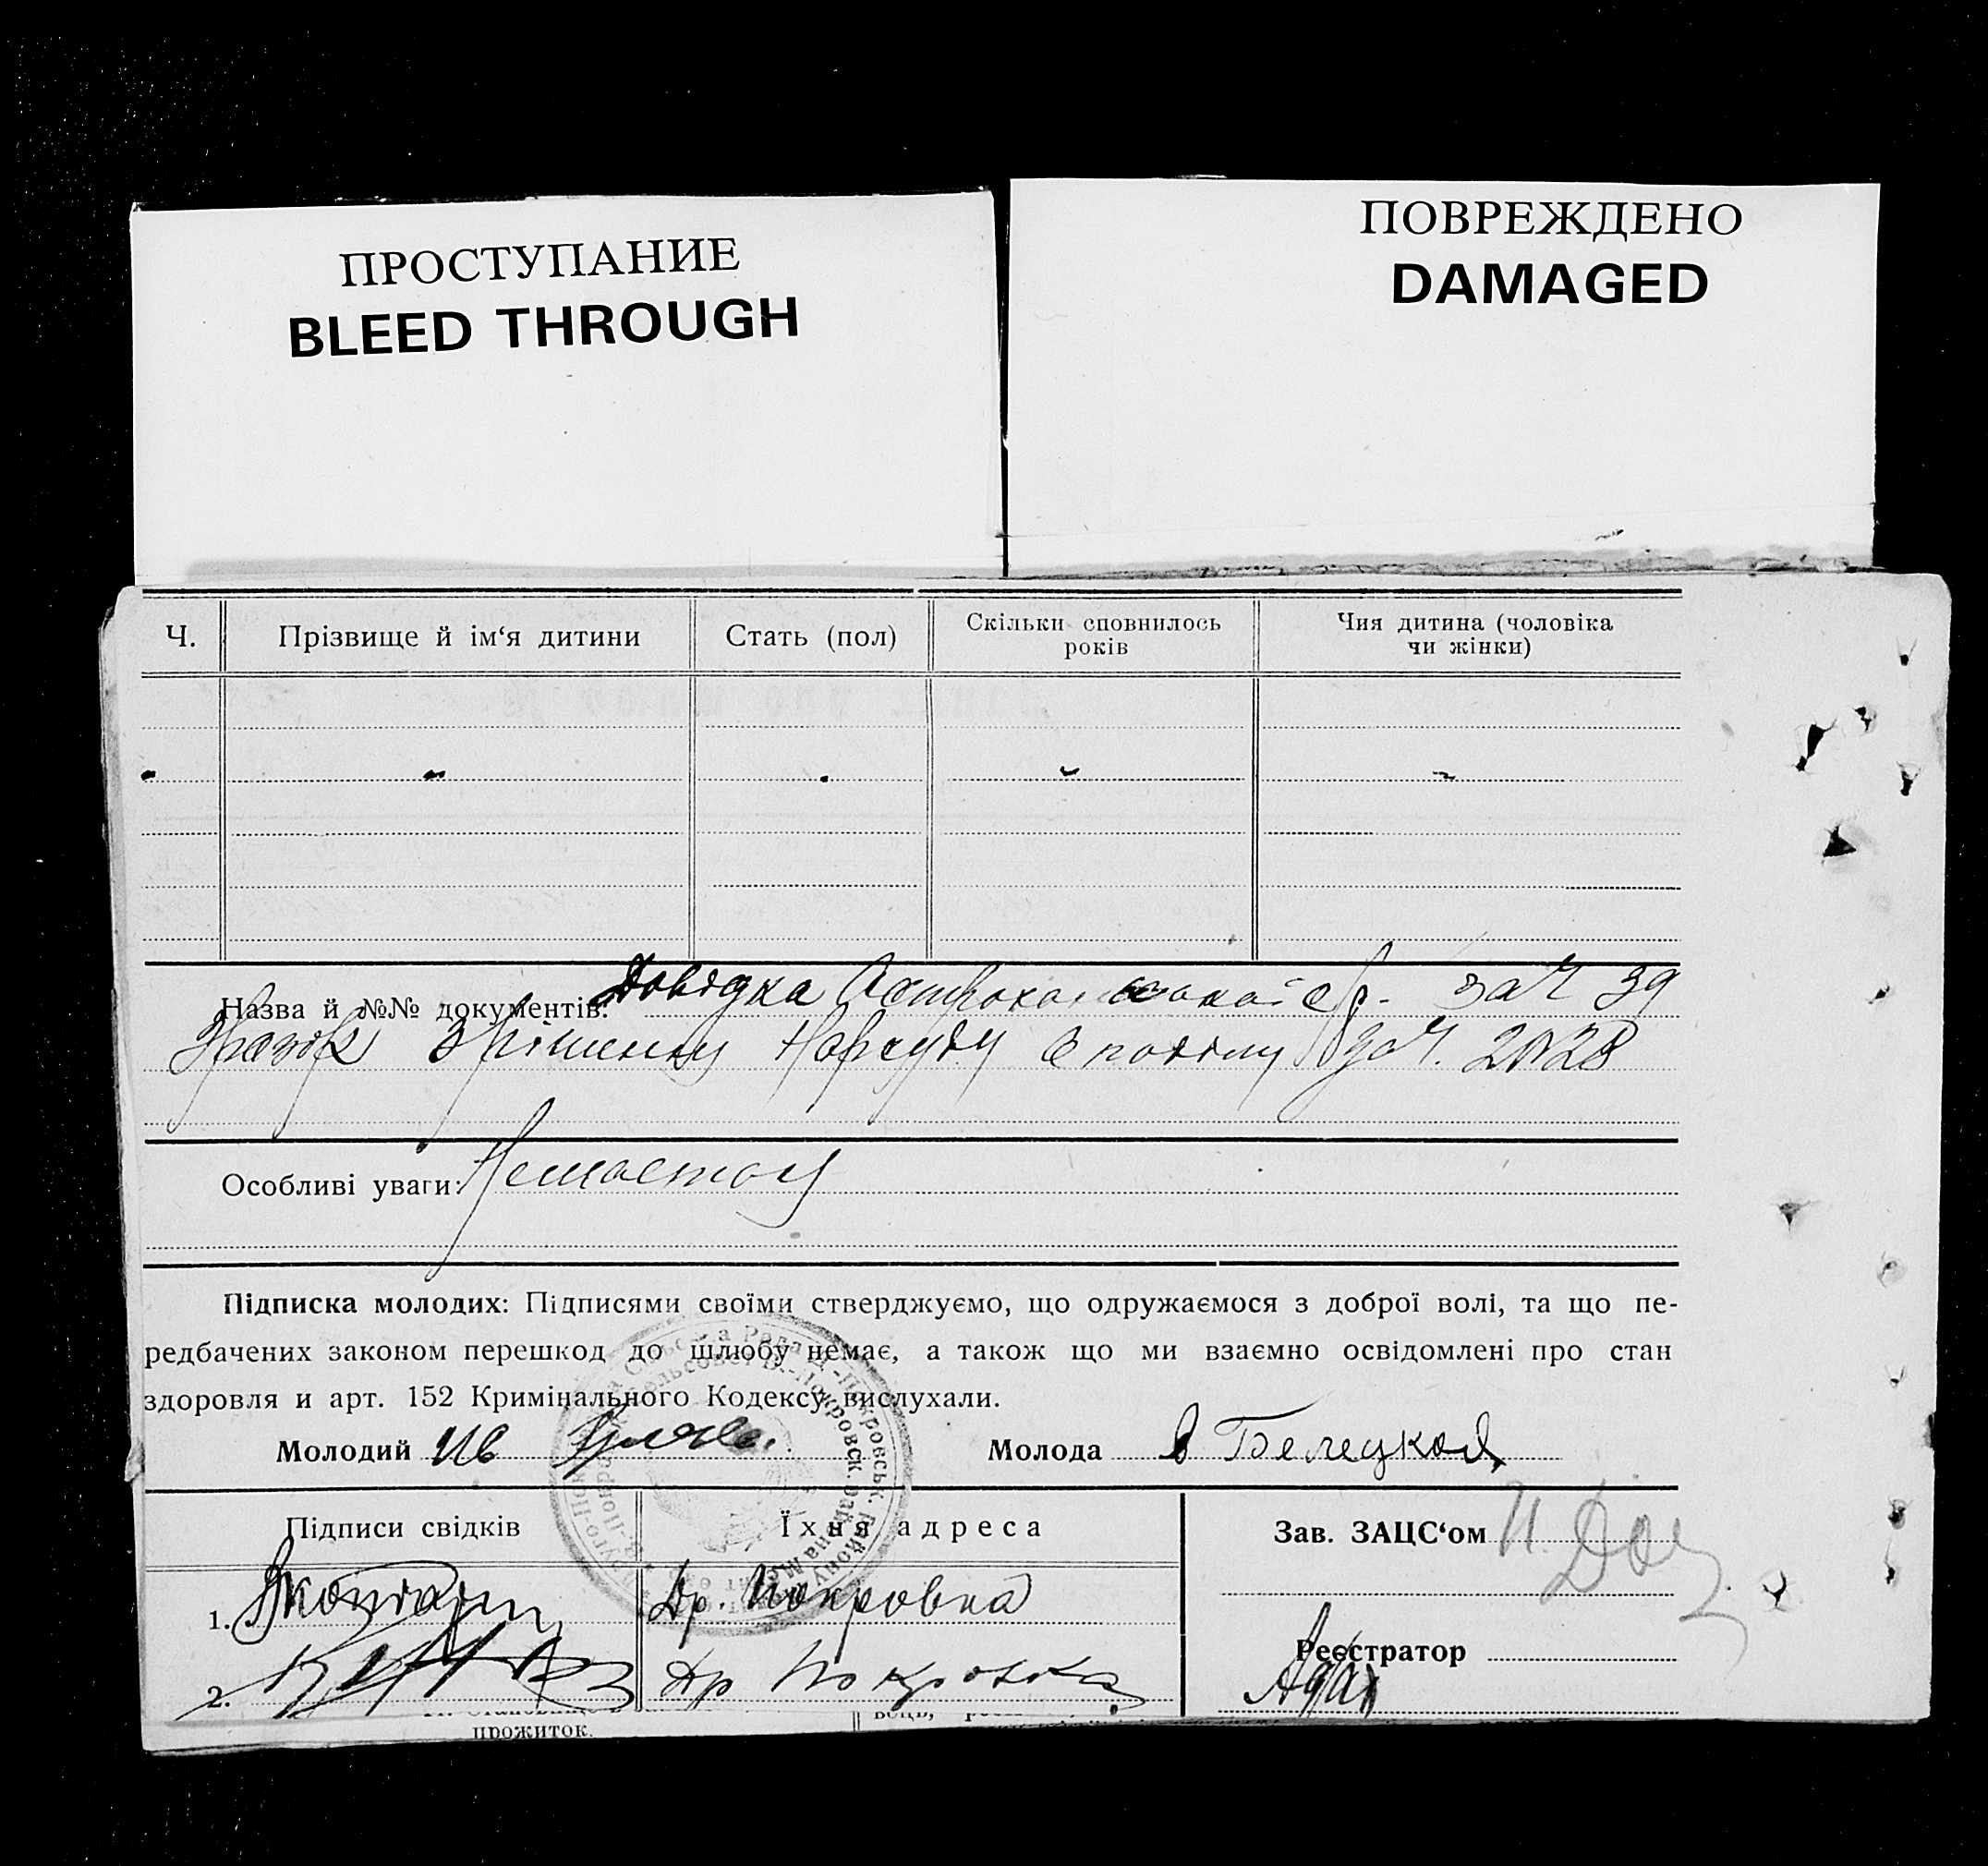 ПРОСТУПАНИЕ
BLEED THROUGH
ПОВРЕЖДЕНО
DAMAGED
Ч.
Прізвище й ім‘я дитини
Стать (пол)
Скільки сповнилось
років
Чия дитина (чоловіка
чи жінки)
Назва й №№ документів: Довідка с/р. за Ч 39
Нарсуду за Ч. 2028
Особливі уваги:
Підписка молодих: Підписями своїми стверджуємо, що одружаємося з доброї волі, та що пе-
редбачених законом перешкод до шлюбу немає, а також що ми взаємно освідомлені про стан
здоровля и арт. 152 Кримінального Кодексу вислухали.
Молодий Ив
Молода в Белецкой
Підписи свідків
Їхня адреса
Зав. ЗАЦС‘ом И.
1. Др. Покровка
Реєстратор
2. Др Покровка
прожиток.